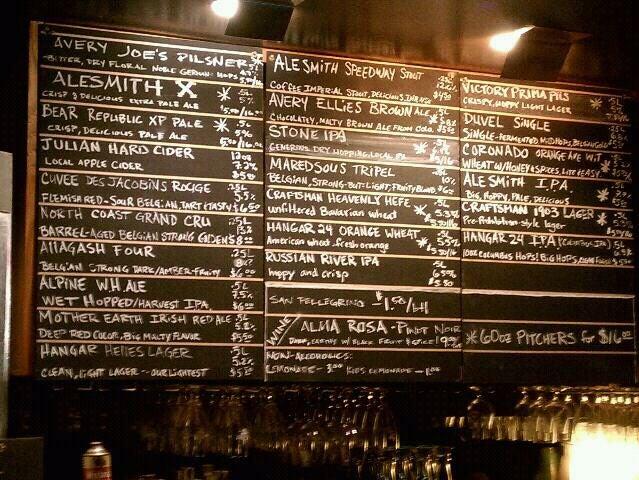 AVERY JOE'S PILSNER .5L
BITTER, DRY FLORAL NOBLE GERMAN HOPS
ALESMITH X .5L
CRISP & DELICIOUS EXTRA PALE ALE
BEAR REPUBLIC XP PALE .5L
CRISP, DELICIOUS PALE ALE
JULIAN HARD CIDER
LOCAL APPLE CIDER
CUVEE DES JACOBINS ROUGE .25L
FLEMISH RED-SOUR BELGIAN, TART & TASTY $6.50
NORTH COAST GRAND CRU .25L
BARREL-AGED BELGIAN STRONG GOLDEN $8.00
ALLAGASH FOUR .25L
BELGIAN STRONG DARK/AMBER-FRUITY $6.00
ALPINE WHALE .5L
7.5%
WET HOPPED/HARVEST IPA $6.00
MOTHER EARTH IRISH RED ALE .5L
5.2%
DEEP RED COLOR, BIG MALTY FLAVOR $5.50
HANGAR HELLES LAGER .5L
5.2%
CLEAN, LIGHT LAGER--OUR LIGHTEST
ALESMITH SPEEDWAY STOUT .25L
12%
COFFEE IMPERIAL STOUT, DELICIOUS
AVERY ELLIES BROWN ALE .5L
CHOCOLATEY, MALTY BROWN ALE FROM COLO.
STONE IPA
GENEROUS DRY HOPPING, LOCAL IPA
MAREDSOUS TRIPEL .25L
10%
BELGIAN, STRONG-BUT-LIGHT, FRUITY BLONDE
CRAFTSMAN HEAVENLY HEFE .5L
unfiltered Bavarian wheat
HANGAR 24 ORANGE WHEAT
American wheat, fresh orange
RUSSIAN RIVER IPA .5L
6.50%
hoppy and crisp $5.50
SAN PELLEGRINO $1.50/btl
WINE ALMA ROSA - PINOT NOIR
DARK, EARTHY W/ BLACK FRUIT & SPICE!
NON-ALCOHOLIC:
LEMONADE- KIDS LEMONADE-
VICTORY PRIMA PILS .5L
CRISPY, HOPPY LIGHT LAGER
DUVEL SINGLE
SINGLE-FERMENTED
CORONADO ORANGE AVE WIT
WHEAT W/ HONEY & SPICES, LITE & EASY
ALESMITH I.P.A. .5L
BIG, HOPPY, PALE, DELICIOUS
CRAFTSMAN 1903 LAGER
Pre-Prohibition-style lager
HANGAR 24 IPA (COLUMBUS IPA)
100% COLUMBUS HOPS! BIG HOPS,
* 60oz PITCHERS for $16.00